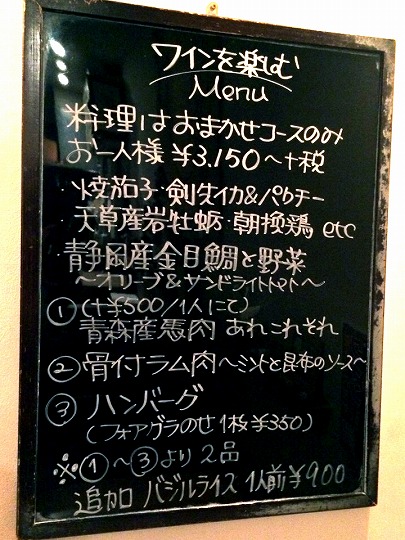 ワインを楽しむ
Menu
料理はおまかせコースのみ
お一人様 ¥3,150〜+税
・焼茄子・剣先イカ&パクチー
・天草産岩牡蛎・朝挽鶏 etc
静岡産金目鯛と野菜
〜オリーブ&サンドライトマト〜
① (+¥500/1人にて)
青森産馬肉 あれこれそれ
② 骨付ラム肉〜ミントと昆布のソース〜
③ ハンバーグ
(フォアグラのせ 1枚 ¥350)
※①〜③より 2品
追加 バジルライス 1人前 ¥900